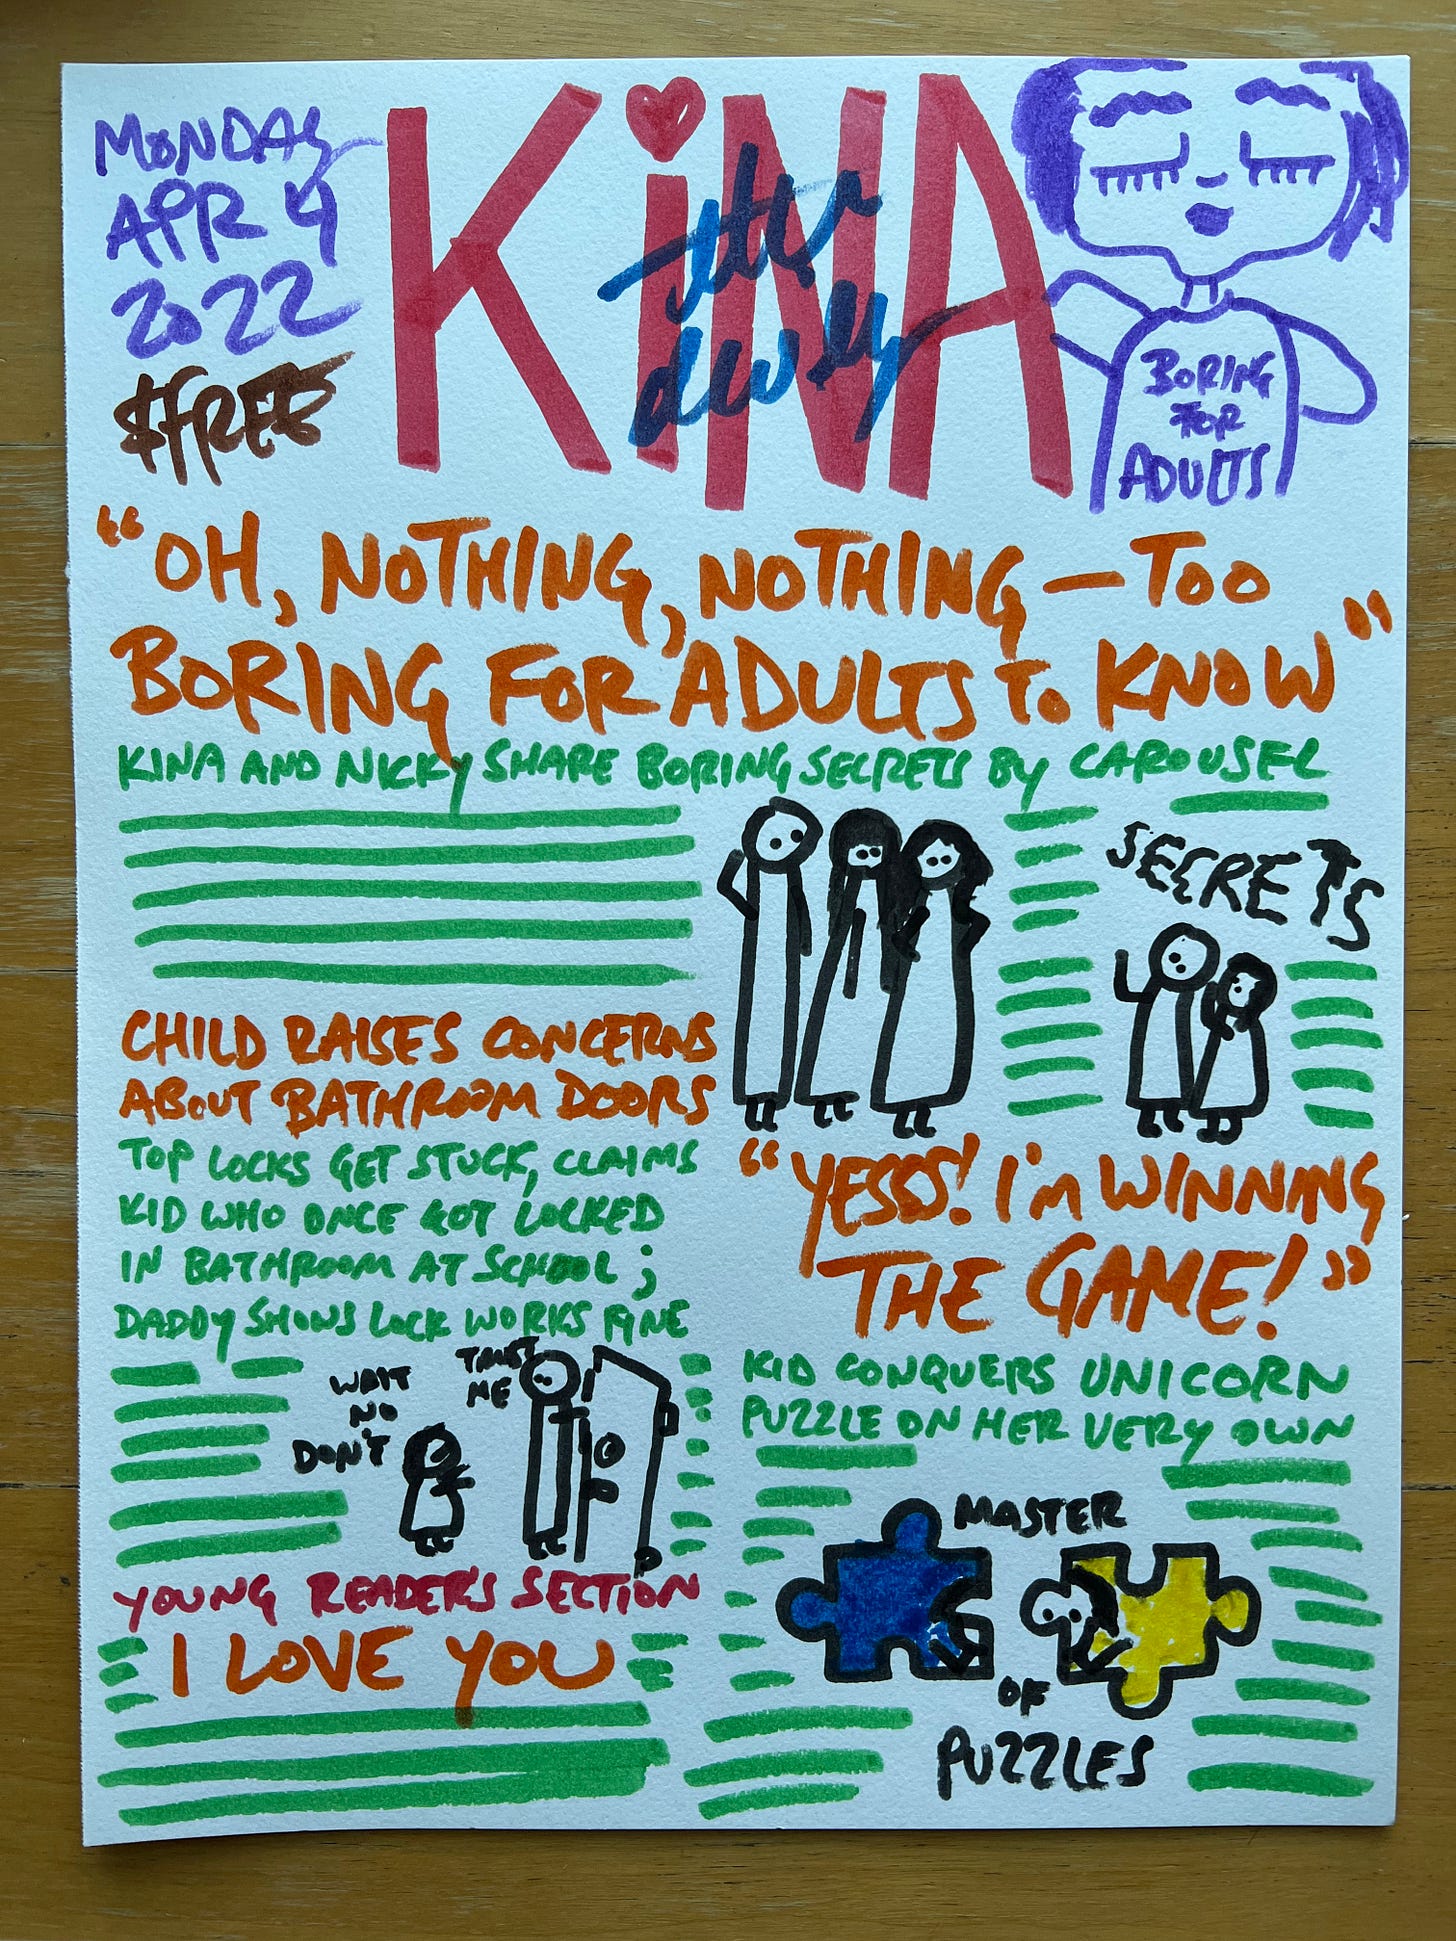 MONDAY
APR 4
2022
$FREE
KiNA
the
dwely
BORING
FOR
ADULTS
"OH, NOTHING, NOTHING — TOO
BORING FOR ADULTS To KNOW"
KINA AND NICKY SHARE BORING SECRETS BY CAROUSEL
SECRETS
CHILD RAISES CONCERNS
ABOUT BATHROOM DOORS
TOP LOCKS GET STUCK, CLAIMS
KID WHO ONCE GOT LOCKED
IN BATHROOM AT SCHOOL;
DADDY SHOWS LOCK WORKS FINE
WAIT
NO
DON'T
TRUST
ME
"YESSS! I'm WINNING
THE GAME!"
KID CONQUERS UNICORN
PUZZLE ON HER VERY OWN
MASTER
OF
PUZZLES
YOUNG READER'S SECTION
I LOVE YOU